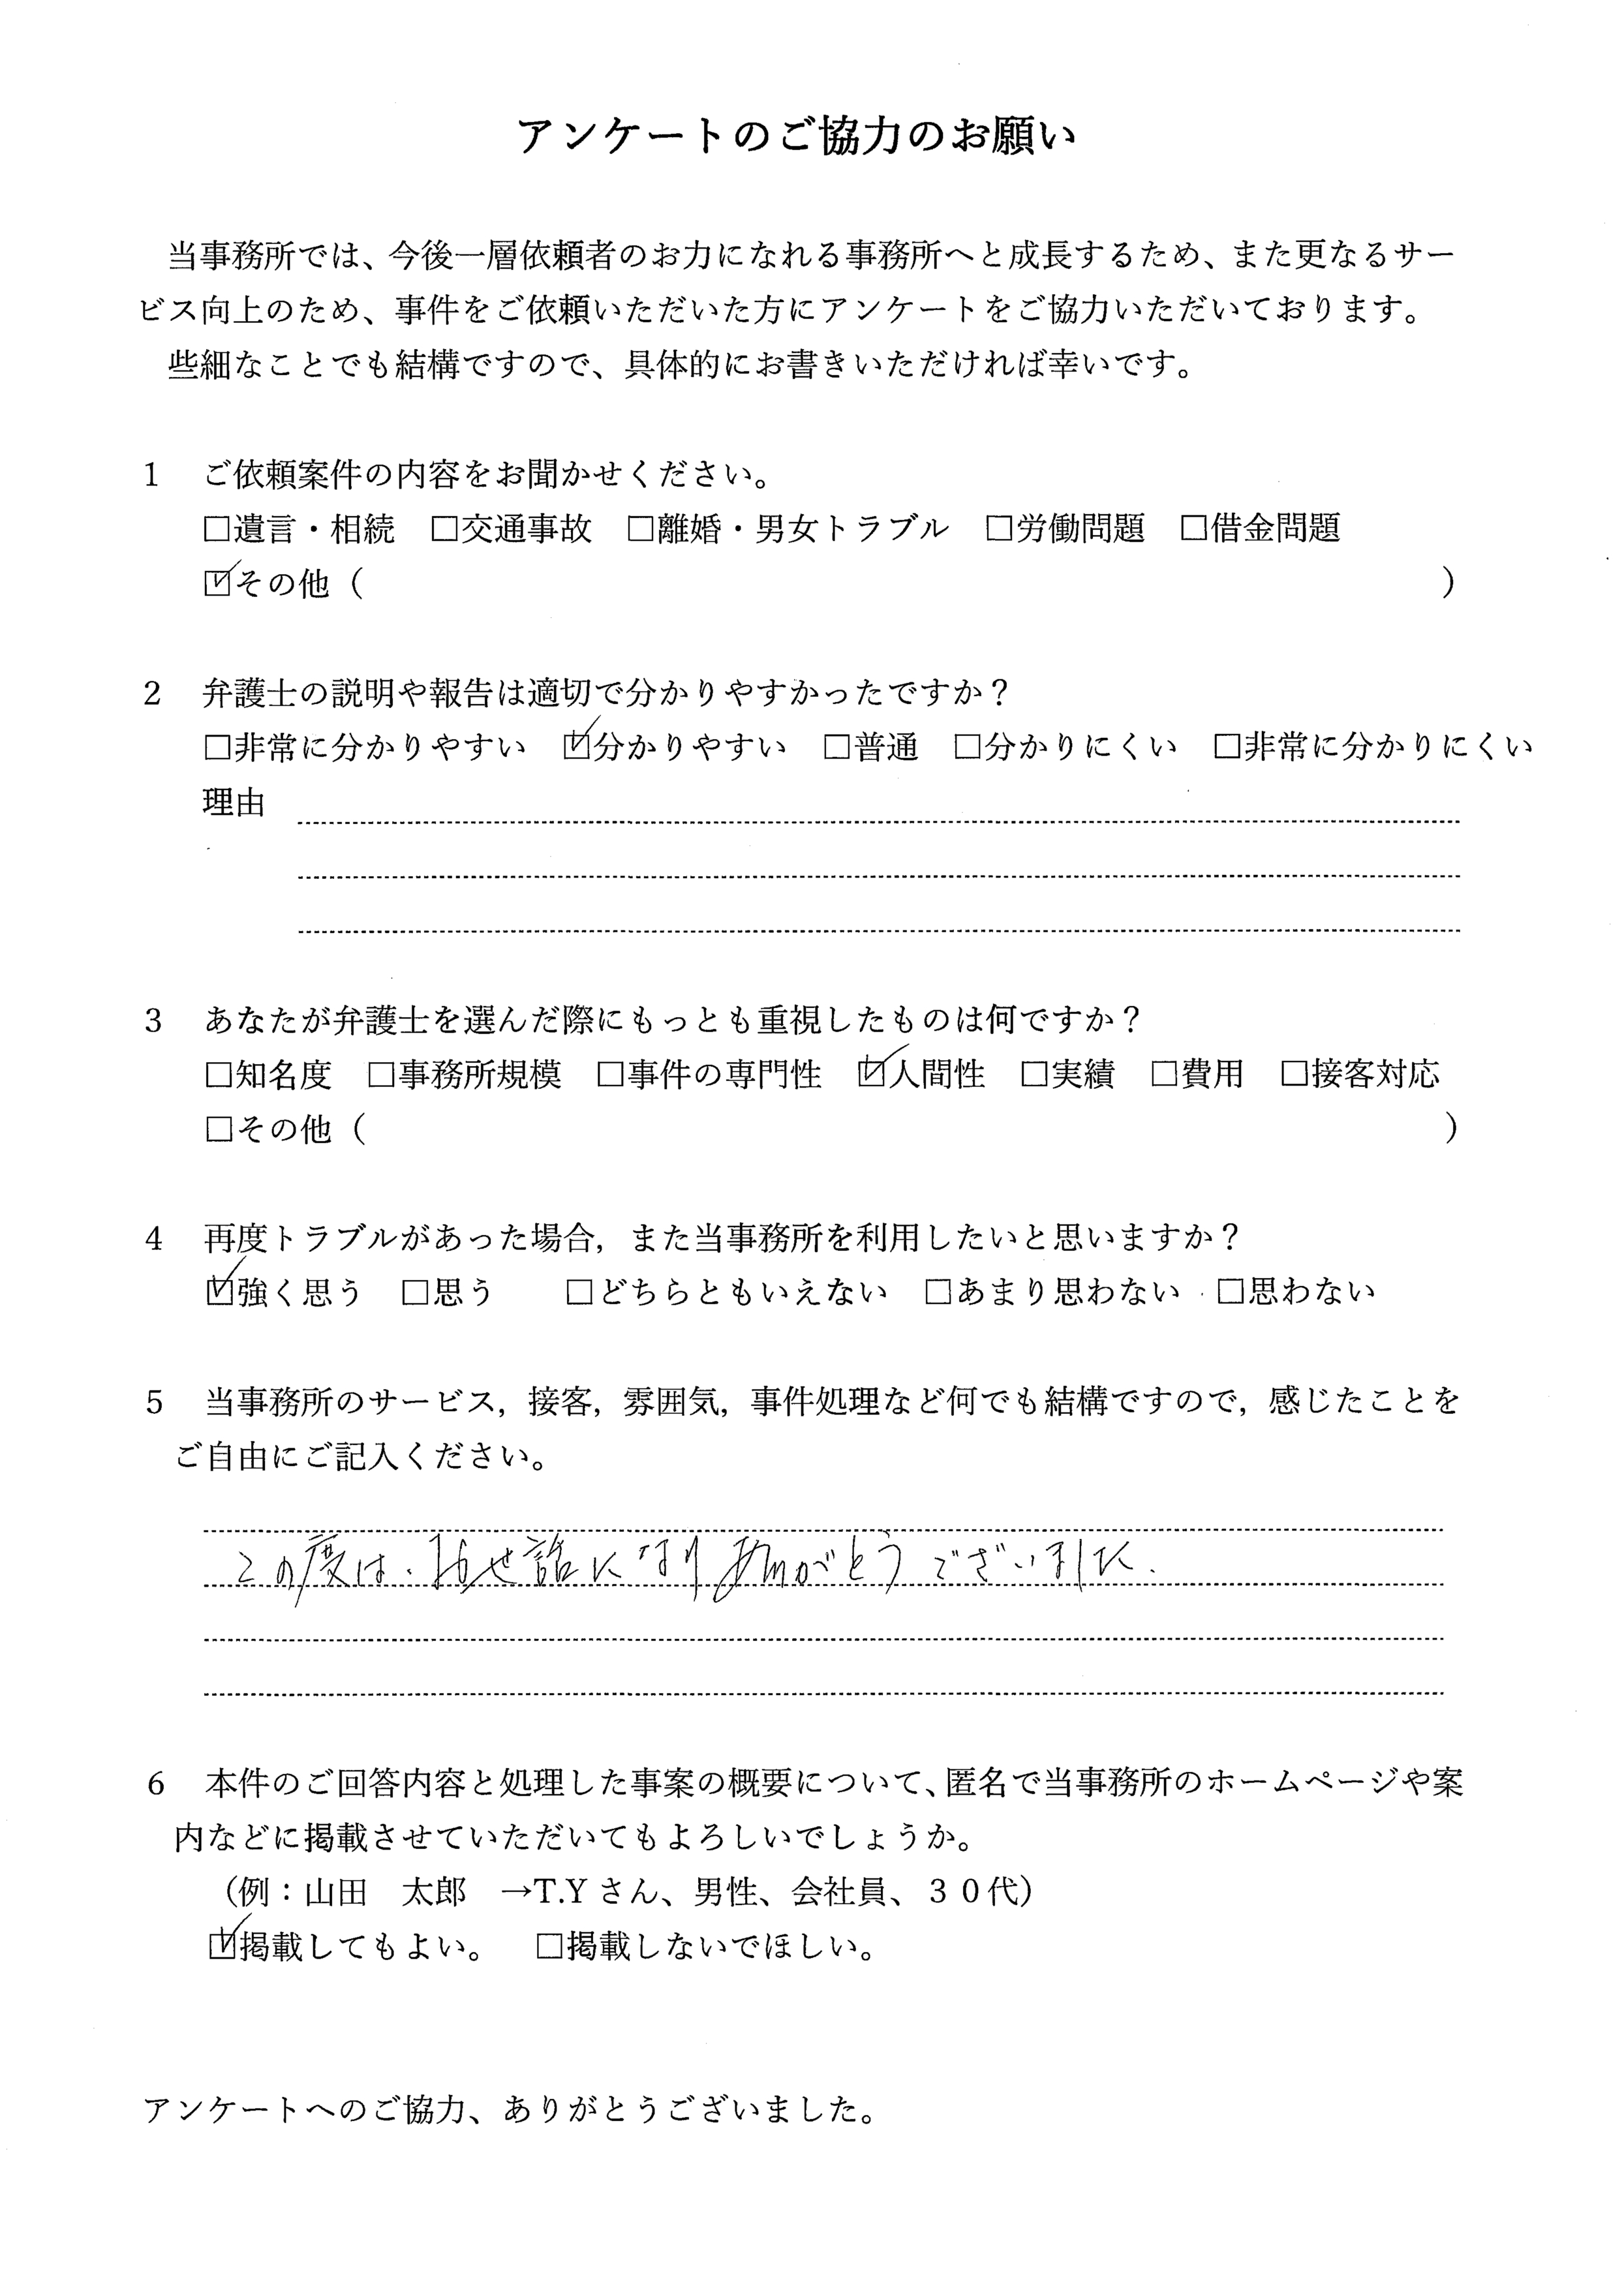 アンケートのご協力のお願い
当事務所では、今後一層依頼者のお力になれる事務所へと成長するため、また更なるサー
ビス向上のため、事件をご依頼いただいた方にアンケートをご協力いただいております。
些細なことでも結構ですので、具体的にお書きいただければ幸いです。
1 ご依頼案件の内容をお聞かせください。
□遺言・相続 □交通事故 □離婚・男女トラブル □労働問題 □借金問題
☑その他（ ）
2 弁護士の説明や報告は適切で分かりやすかったですか？
□非常に分かりやすい ☑分かりやすい □普通 □分かりにくい □非常に分かりにくい
理由
3 あなたが弁護士を選んだ際にもっとも重視したものは何ですか？
□知名度 □事務所規模 □事件の専門性 ☑人間性 □実績 □費用 □接客対応
□その他（ ）
4 再度トラブルがあった場合，また当事務所を利用したいと思いますか？
☑強く思う □思う □どちらともいえない □あまり思わない □思わない
5 当事務所のサービス，接客，雰囲気，事件処理など何でも結構ですので，感じたことを
ご自由にご記入ください。
この度は、お世話になりありがとうございました.
6 本件のご回答内容と処理した事案の概要について、匿名で当事務所のホームページや案
内などに掲載させていただいてもよろしいでしょうか。
（例：山田 太郎 →T.Y さん、男性、会社員、３０代）
☑掲載してもよい。 □掲載しないでほしい。
アンケートへのご協力、ありがとうございました。